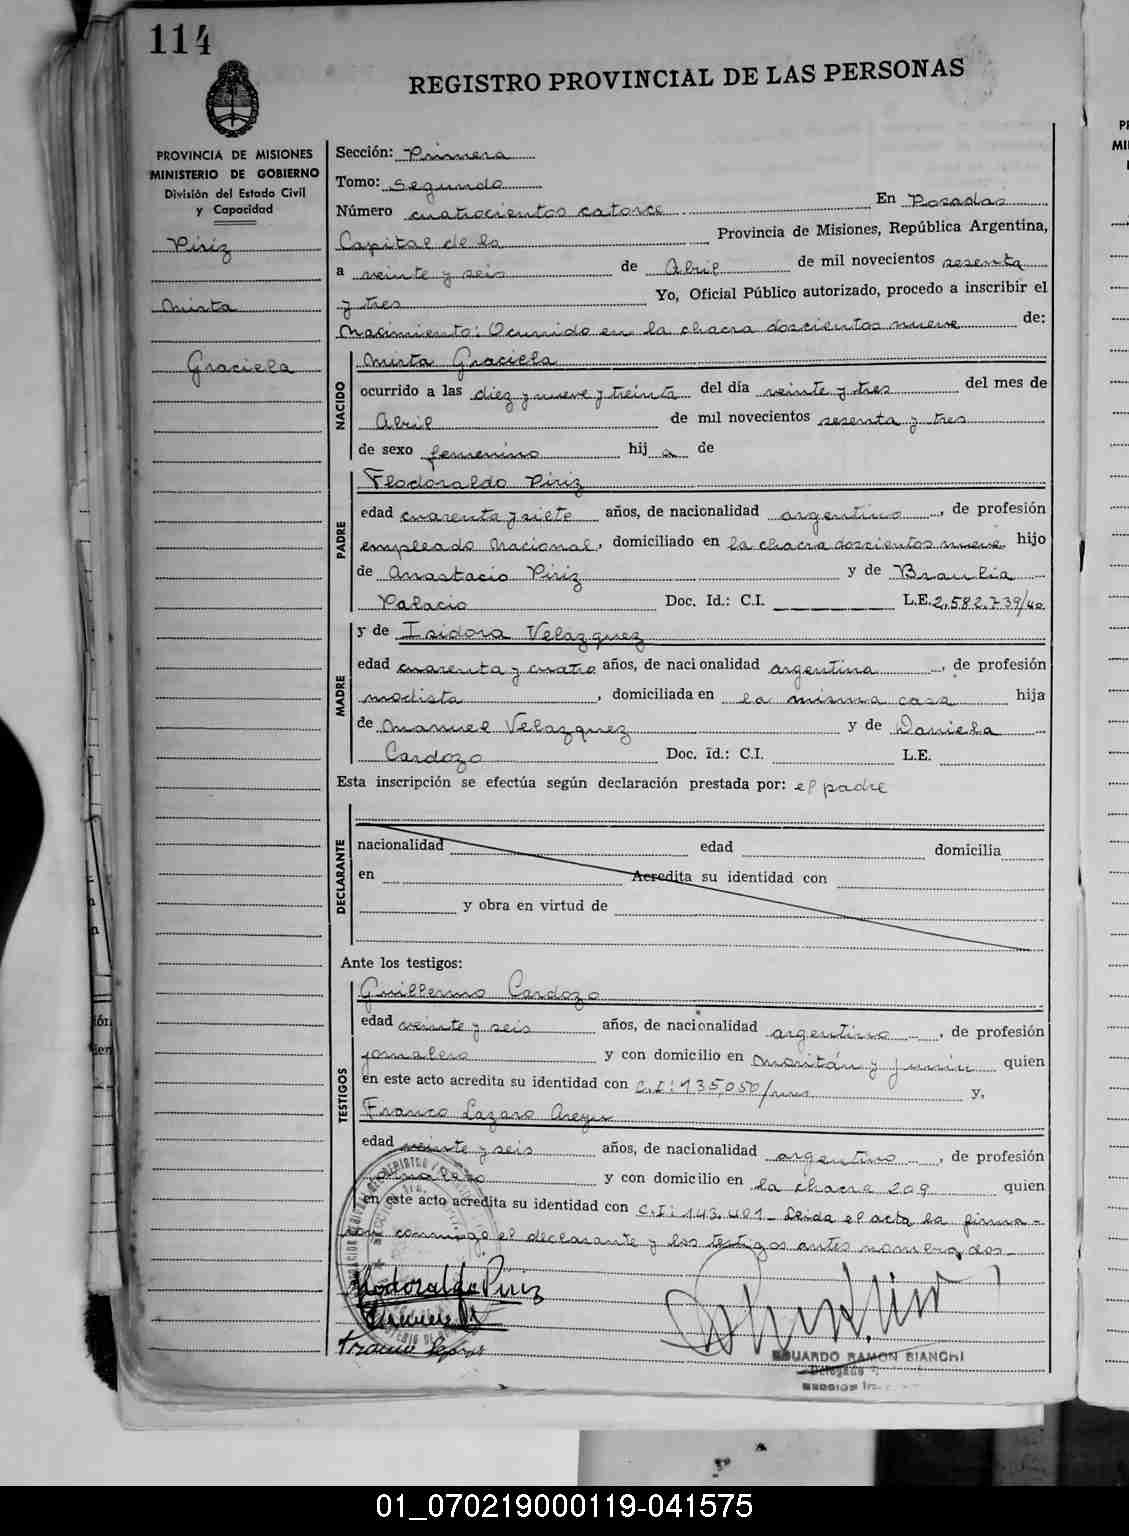 114
REGISTRO PROVINCIAL DE LAS PERSONAS
PROVINCIA DE MISIONES
MINISTERIO DE GOBIERNO
División del Estado Civil
y Capacidad
Piriz
Mirta
Graciela
Sección: Primera
Tomo: Segundo
Número cuatrocientos catorce En Posadas
Capital de la Provincia de Misiones, República Argentina,
a veinte y seis de Abril de mil novecientos sesenta
y tres Yo, Oficial Público autorizado, procedo a inscribir el
Nacimiento: Ocurrido en la chacra doscientos nueve de:
NACIDO
Mirta Graciela
ocurrido a las diez y nueve y treinta del día veinte y tres del mes de
Abril de mil novecientos sesenta y tres
de sexo femenino hij a de
PADRE
Flodoraldo Piriz
edad cuarenta y siete años, de nacionalidad argentino, de profesión
empleado Nacional, domiciliado en la chacra doscientos nueve hijo
de Anastacio Piriz y de Braulia
Palacio Doc. Id.: C.I. L.E. 2.582.739/40
MADRE
y de Isidora Velazquez
edad cuarenta y cuatro años, de nacionalidad argentina, de profesión
modista, domiciliada en la misma casa hija
de Manuel Velazquez y de Daniela
Cardozo Doc. id.: C.I. L.E.
Esta inscripción se efectúa según declaración prestada por: el padre
DECLARANTE
nacionalidad edad domicilia
en Acredita su identidad con
y obra en virtud de
Ante los testigos:
TESTIGOS
Guillermo Cardozo
edad veinte y seis años, de nacionalidad argentino, de profesión
jornalero y con domicilio en Moritán y Junín quien
en este acto acredita su identidad con C.I: 135,050/ y,
Franco Lazaro
edad veinte y seis años, de nacionalidad argentino, de profesión
jornalero y con domicilio en la chacra 209 quien
en este acto acredita su identidad con C.I: 143.401_ Leida el acta la firma-
ron conmigo el declarante y los testigos antes nombrados_
Flodoraldo Piriz
EDUARDO RAMON BIANCHI
Delegado
SECCION
01_070219000119-041575